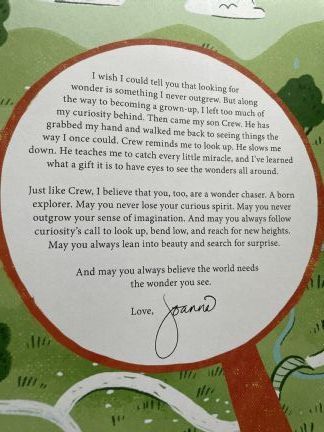 I wish I could tell you that looking for
wonder is something I never outgrew. But along
the way to becoming a grown-up, I left too much of
my curiosity behind. Then came my son Crew. He has
grabbed my hand and walked me back to seeing things the
way I once could. Crew reminds me to look up. He slows me
down. He teaches me to catch every little miracle, and I've learned
what a gift it is to have eyes to see the wonders all around.
Just like Crew, I believe that you, too, are a wonder chaser. A born
explorer. May you never lose your curious spirit. May you never
outgrow your sense of imagination. And may you always follow
curiosity's call to look up, bend low, and reach for new heights.
May you always lean into beauty and search for surprise.
And may you always believe the world needs
the wonder you see.
Love, Joanna